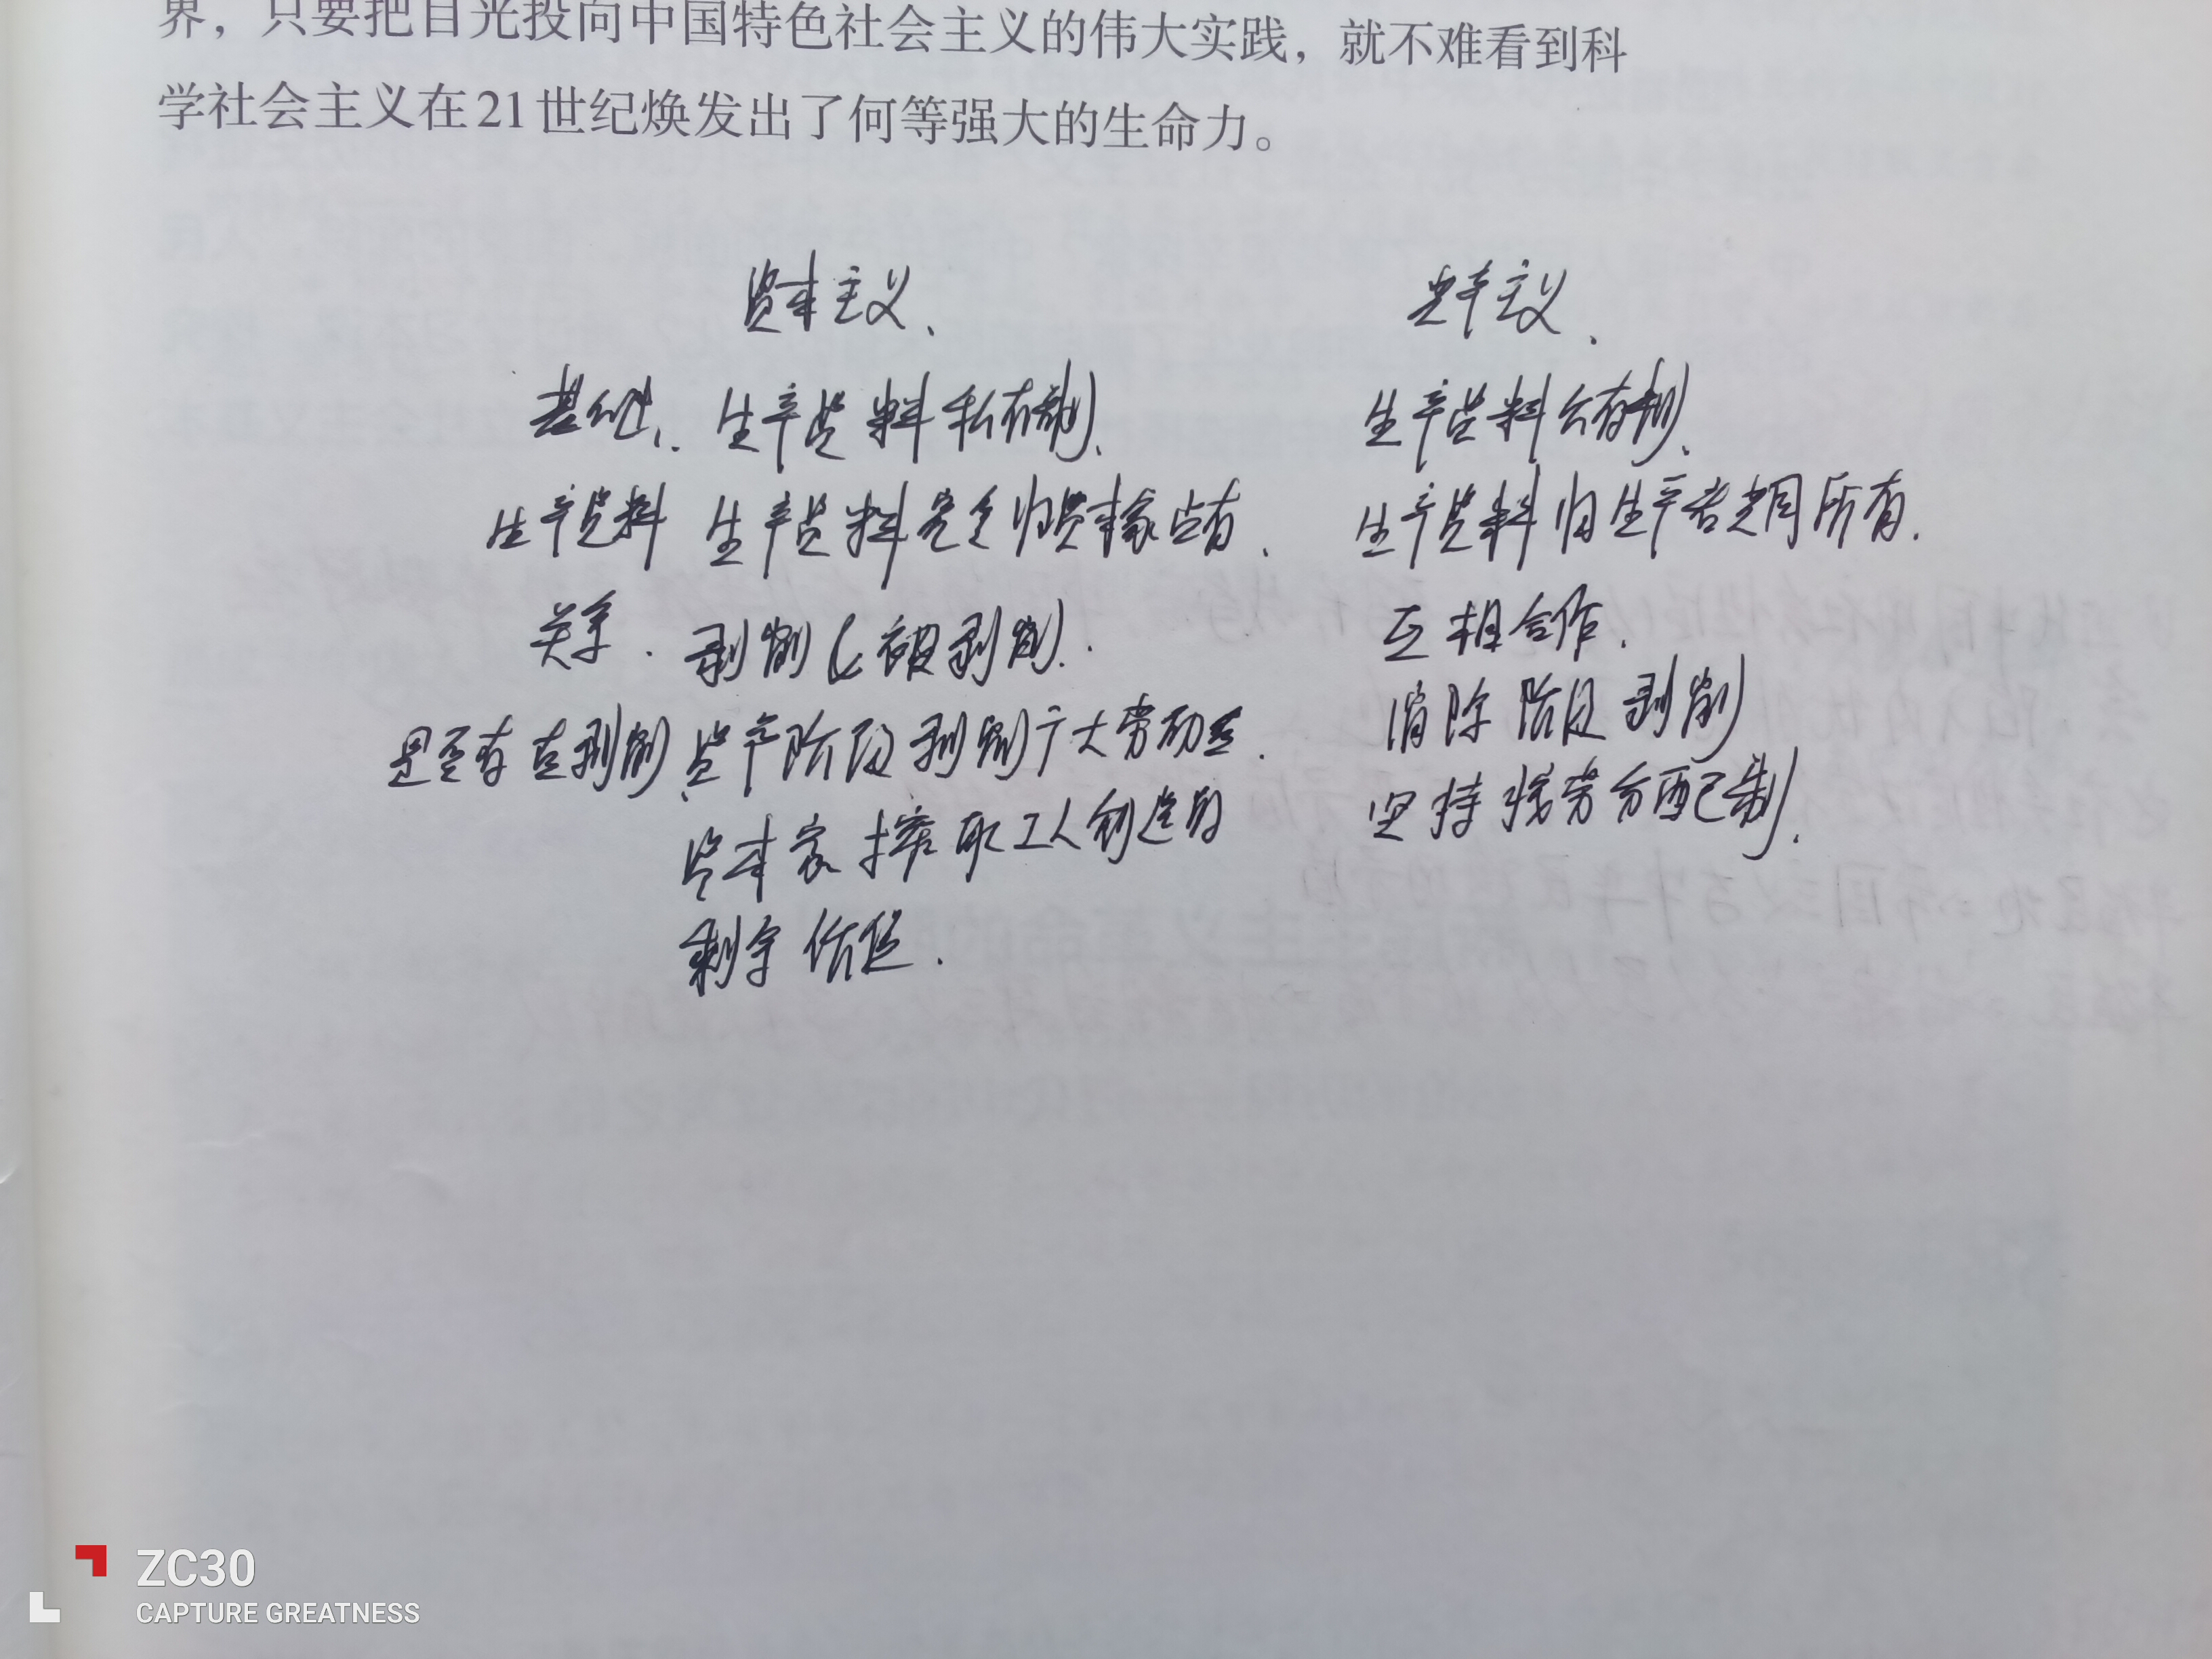 界，只要把目光投向中国特色社会主义的伟大实践，就不难看到科
学社会主义在21世纪焕发出了何等强大的生命力。
资本主义、 共产主义、
基础、 生产资料私有制、 生产资料公有制、
生产资料 生产资料完全归资本家占有、 生产资料归生产者共同所有.
关系. 剥削与被剥削. 互相合作.
是否存在剥削 资产阶级剥削广大劳动者. 消除阶级剥削
资本家榨取工人创造的 坚持按劳分配制.
剩余价值.
ZC30
CAPTURE GREATNESS